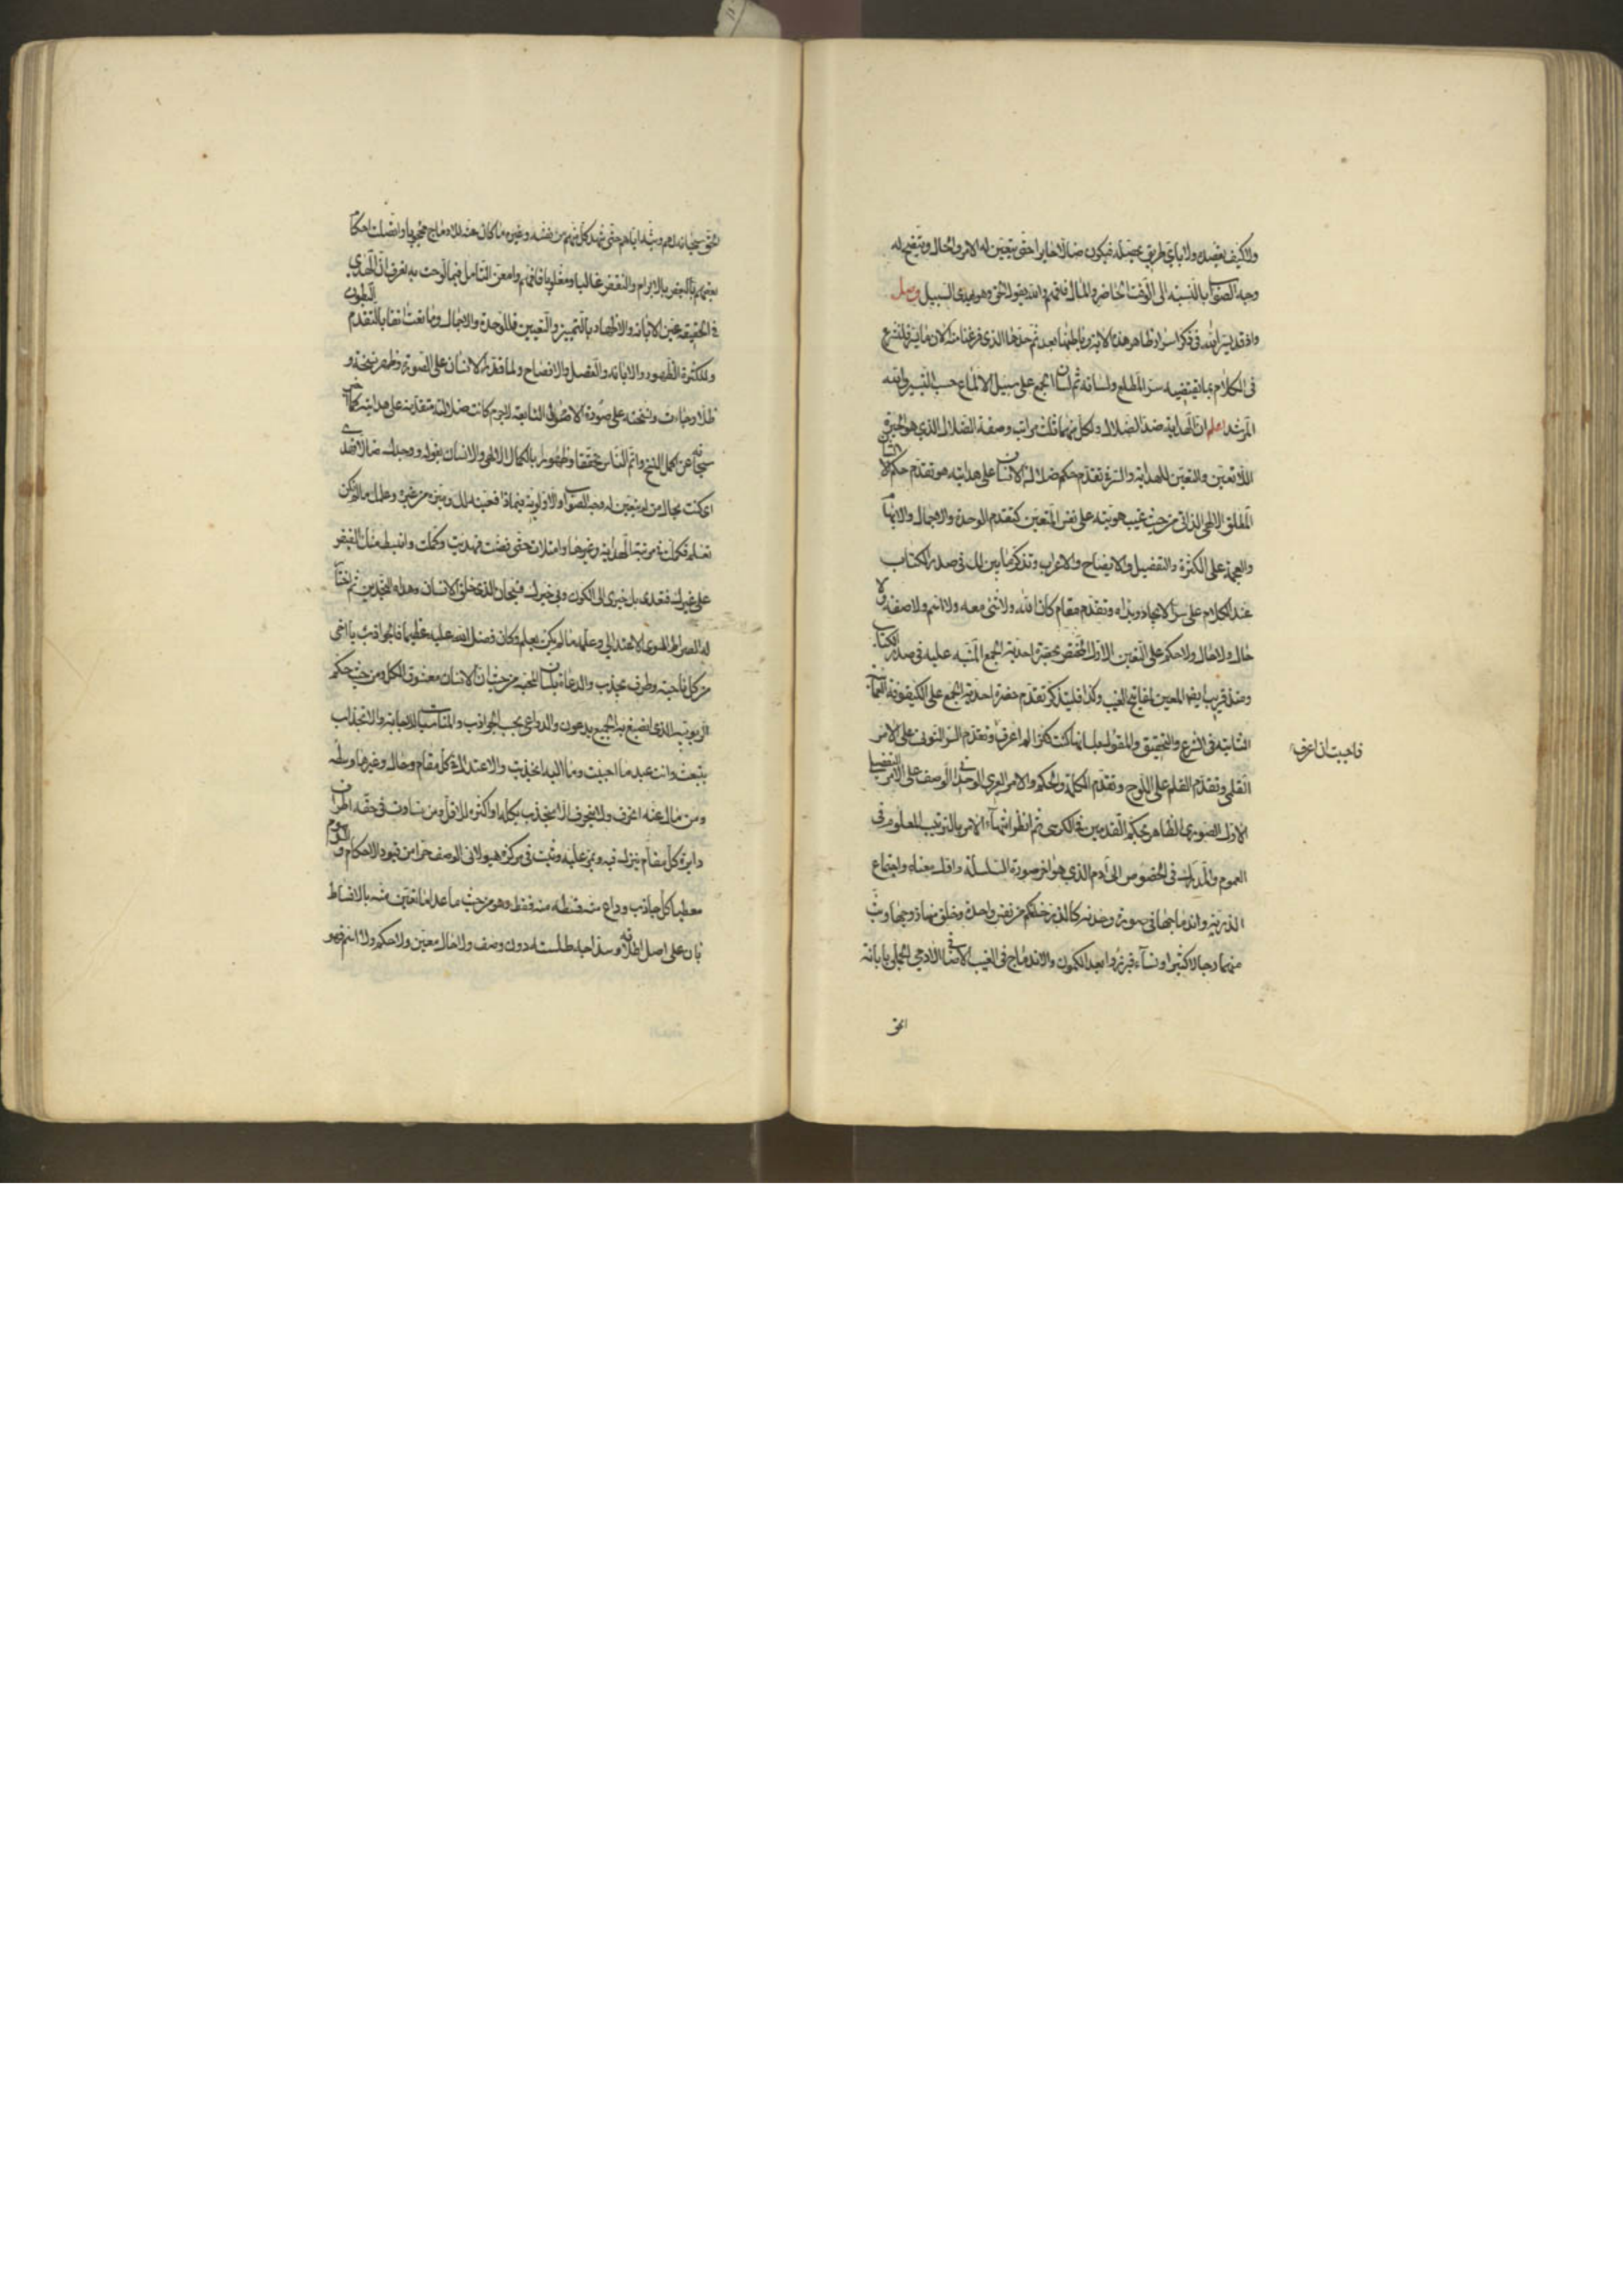 ولا كيف يقصده ولا باي طريق يحصله فيكون ضالا حايرا حتى يتعين له الامر والحال ويتضح له
وجه الصواب بالنسبة الى الوقت الحاضر والمآل فافهم والله يقول الحق وهو يهدي السبيل وصل
واذ قد يسر الله في ذكر اسرار ظاهر هذه الاية وباطنها بعد ثم حدها الذي فرغنا منه الان ما يسر فلنشرع
في الكلام بما يقتضيه سر المطلع ولسانه ثم لسان الجمع على سبيل الالماع حسب التيسير والله
المرشد اعلم ان الهداية ضد الضلال ولكل منهما ثلث مراتب وصفة الضلال الذي هو الحيرة
اللاتعين والتعين للهداية والسر في تقدم حكم ضلالة الانسان على هدايته هو تقدم حكم الشان
المطلق الالهي الذاتي من حيث غيب هويته على نفس التعين كتقدم الوحدة والاجمال والابهام
والعجمة على الكثرة والتفصيل والايضاح والاعراب وتذكر ما بين لك في صدر الكتاب
عند الكلام على سر الايجاد وبدئه وتقدم مقام كان الله ولا شئ معه ولا اسم ولا صفة ولا
حال ولا حكم على التعين الاول المختص بحضرة احدية الجمع المنبه عليه في صدر الكتاب
ومنذ قريب ايضا المعين لمفاتيح الغيب وكذا فليتذكر تقدم حضرة احدية الجمع على الكينونة العمائية
الثابتة في الشرع والتحقيق والمقول بلسانها كنت كنزا لم اعرف وتقدم السر النوني على الامر
فاحببت ان اعرف
القلمي وتقدم القلم على اللوح وتقدم الكلمة والحكم والامر العرشي الوحداني الوصف على الامر التفصيلي
الاول الصوري الظاهر بحكم القدمين في الكرسي ثم انظر انتهاء الامر بالترتيب المعلوم في
العموم والمدرك في الخصوص الى آدم الذي هو اخر صورة السلسلة واول معناها واجتماع
الذرية واندماجها في صورة وحدته كالذي خلقكم من نفس واحدة وخلق منها زوجها وبث
منهما رجالا كثيرا ونساء فبرزوا بعد الكمون والاندماج في الغيب الاضافي الآدمي الجملي بابانة
الحق
الحق سبحانه لهم وبثه اياهم حتى شهد كل منهم من نفسه وغيره ما كان هذا الاندماج محجوبا واتصلت احكام
بعضهم بالبعض بالابرام والنقض غالبا ومغلوبا فافهم وامعن التامل فيما لوحت به تعرف ان الهدى
في الحقيقة عين الابانة والاظهار بالتمييز والتعيين فللوحدة والاجمال وما نعت انفا بالتقدم البطون
وللكثرة الظهور والابانة والفصل والافصاح ولما قدر الانسان على الصورة وظهر نسخة و
ظلا وجاءت نسخته على صورة الاصول التابعة لا جرم كانت ضلالته متقدمة على هدايته كما اخبر
سبحانه عن اكمل النسخ واتم الناس تحققا وظهورا بالكمال الالهي والانسان بقوله ووجدك ضالا فهدى
اي كنت بحال من لم يتعين له وجه الصواب والاولوية فيماذا فعينه لك وميزه من غيره وعلمك ما لم تكن
تعلم فكملت في مرتبة الهداية وغيرها وامتلات حتى فضت فهديت وكملت وانبسط منك الفيض
على غيرك فتعدى بك خيري الى الكون وفي خيرك فسبحان الذي خلق الانسان وهداه النجدين ثم اختار
له الصراط السوي الاعتدالي وعلمه ما لم يكن يعلم وكان فضل الله عليه عظيما فالجواذب يا اخي
من كل ناحية وطرف تجذب والدعاة بلسان المحبة من حيث ان الانسان معشوق الكل ومن حيث حكم
الربوبية الذي انصبغ به الجميع يدعون والدواعي بحسب الجواذب والمناسبات للاجابة والانجذاب
تنبعث وانت عبد ما احببت وما اليه انجذبت والاعتدال في كل مقام وحال وغيرها وسطه
ومن مال عنه انحرف ولا ينحرف الا منجذب بكله او اكثره للاقل ومن تساوت في حقه اطراف
دايرة كل مقام ينزل فيه ويمر عليه وثبت في مركزه هيولاني الوصف حرا من قيود الاحكام والرسوم
معطيا كل جاذب وداع منه قسطه منه فقط وهو من حيث ما عدا ما تعين منه بالاقساط
باق على اصل اطلاقه وسذاجة طلسته دون وصف ولا حال معين ولا حكم ولا اسم فهو